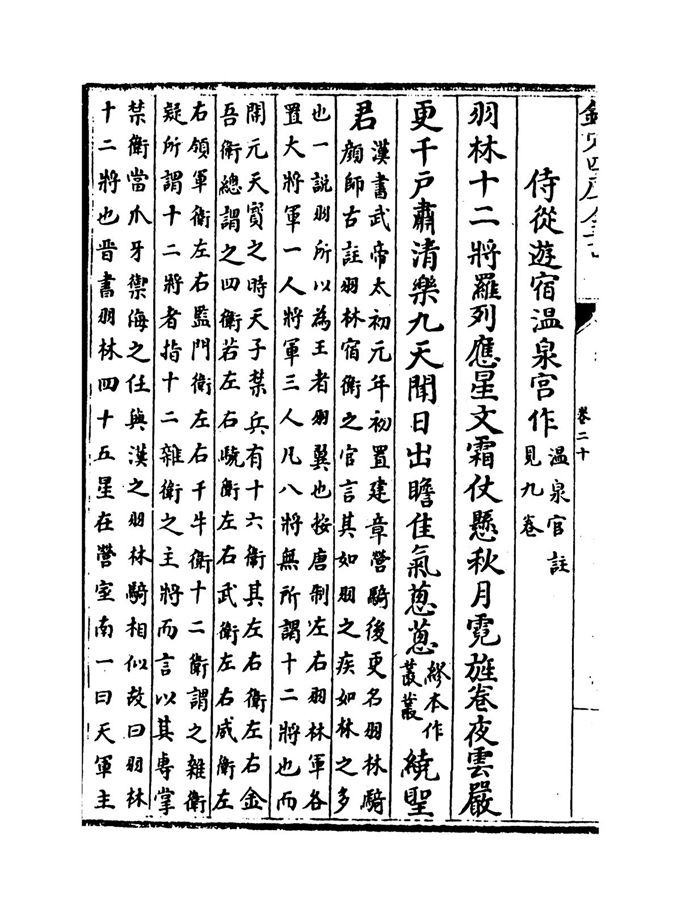 欽定四庫全書
卷二十
侍從遊宿温泉宫作
温泉官註
見九卷
羽林十二將羅列應星文霜仗懸秋月霓旌卷夜雲嚴
更千戸肅清樂九天聞日出瞻佳氣蔥蔥繆本作叢叢繞聖
君
漢書武帝太初元年初置建章營騎後更名羽林騎
顔師古註羽林宿衛之官言其如羽之疾如林之多
也一説羽所以為王者羽翼也按唐制左右羽林軍各
置大將軍一人將軍三人凡八將無所謂十二將也而
開元天寳之時天子禁兵有十六衛其左右衛左右金
吾衛總謂之四衛若左右驍衛左右武衛左右威衛左
右領軍衛左右監門衛左右千牛衛十二衛謂之雜衛
疑所謂十二將者指十二雜衛之主將而言以其專掌
禁衛當爪牙禦侮之任與漢之羽林騎相似故曰羽林
十二將也晋書羽林四十五星在營室南一曰天軍主